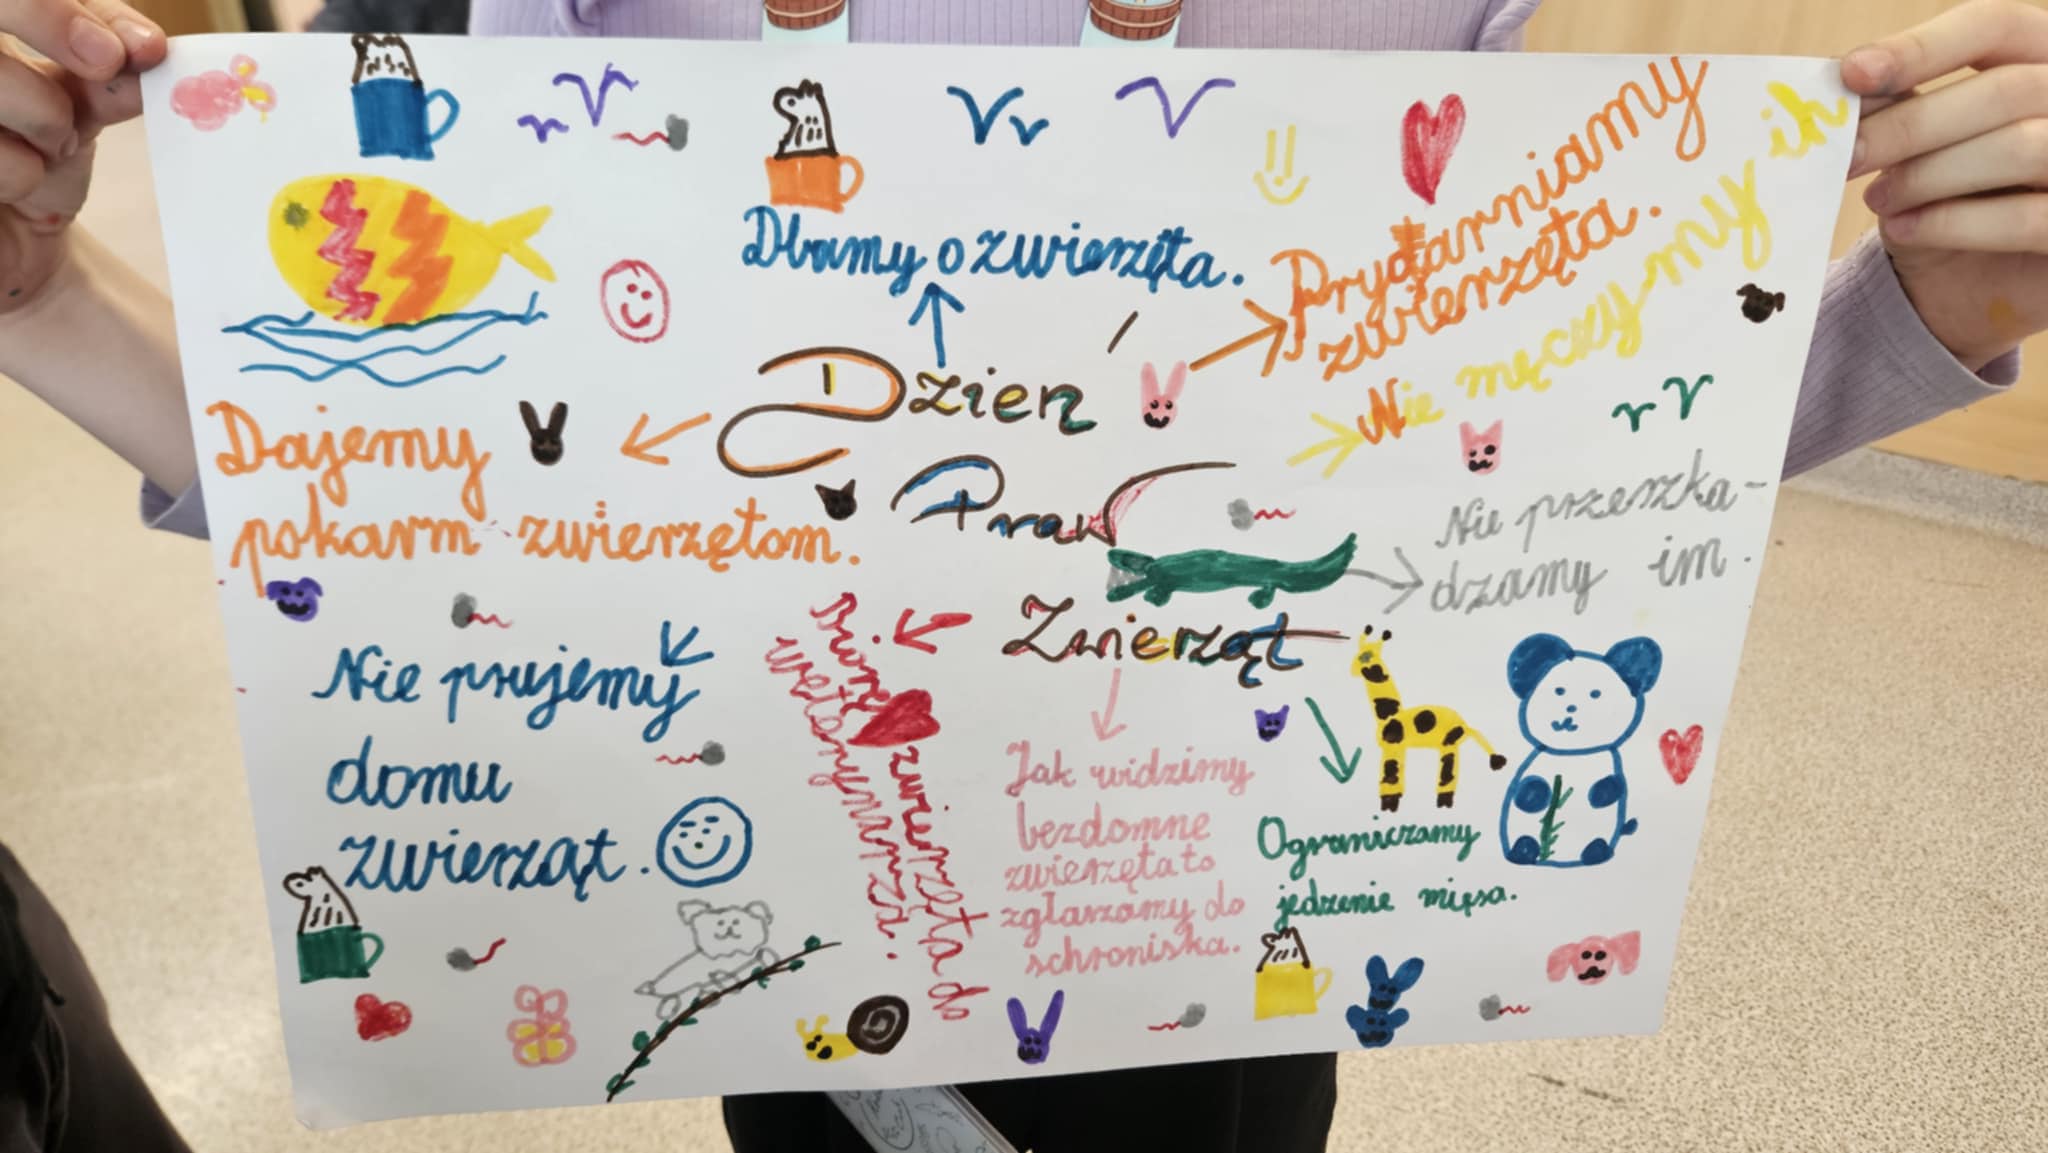 Dzień
Praw
Zwierząt
Dbamy o zwierzęta.
Prydarniamy
zwierzęta.
Nie męczymy ich
Nie przeszka-
dzamy im.
Ograniczamy
jedzenie mięsa.
Jak widzimy
bezdomne
zwierzęta to
zgłaszamy do
schroniska.
zwierzęta do
Nie prujemy
domu
zwierząt.
Dajemy
pokarm zwierzętom.